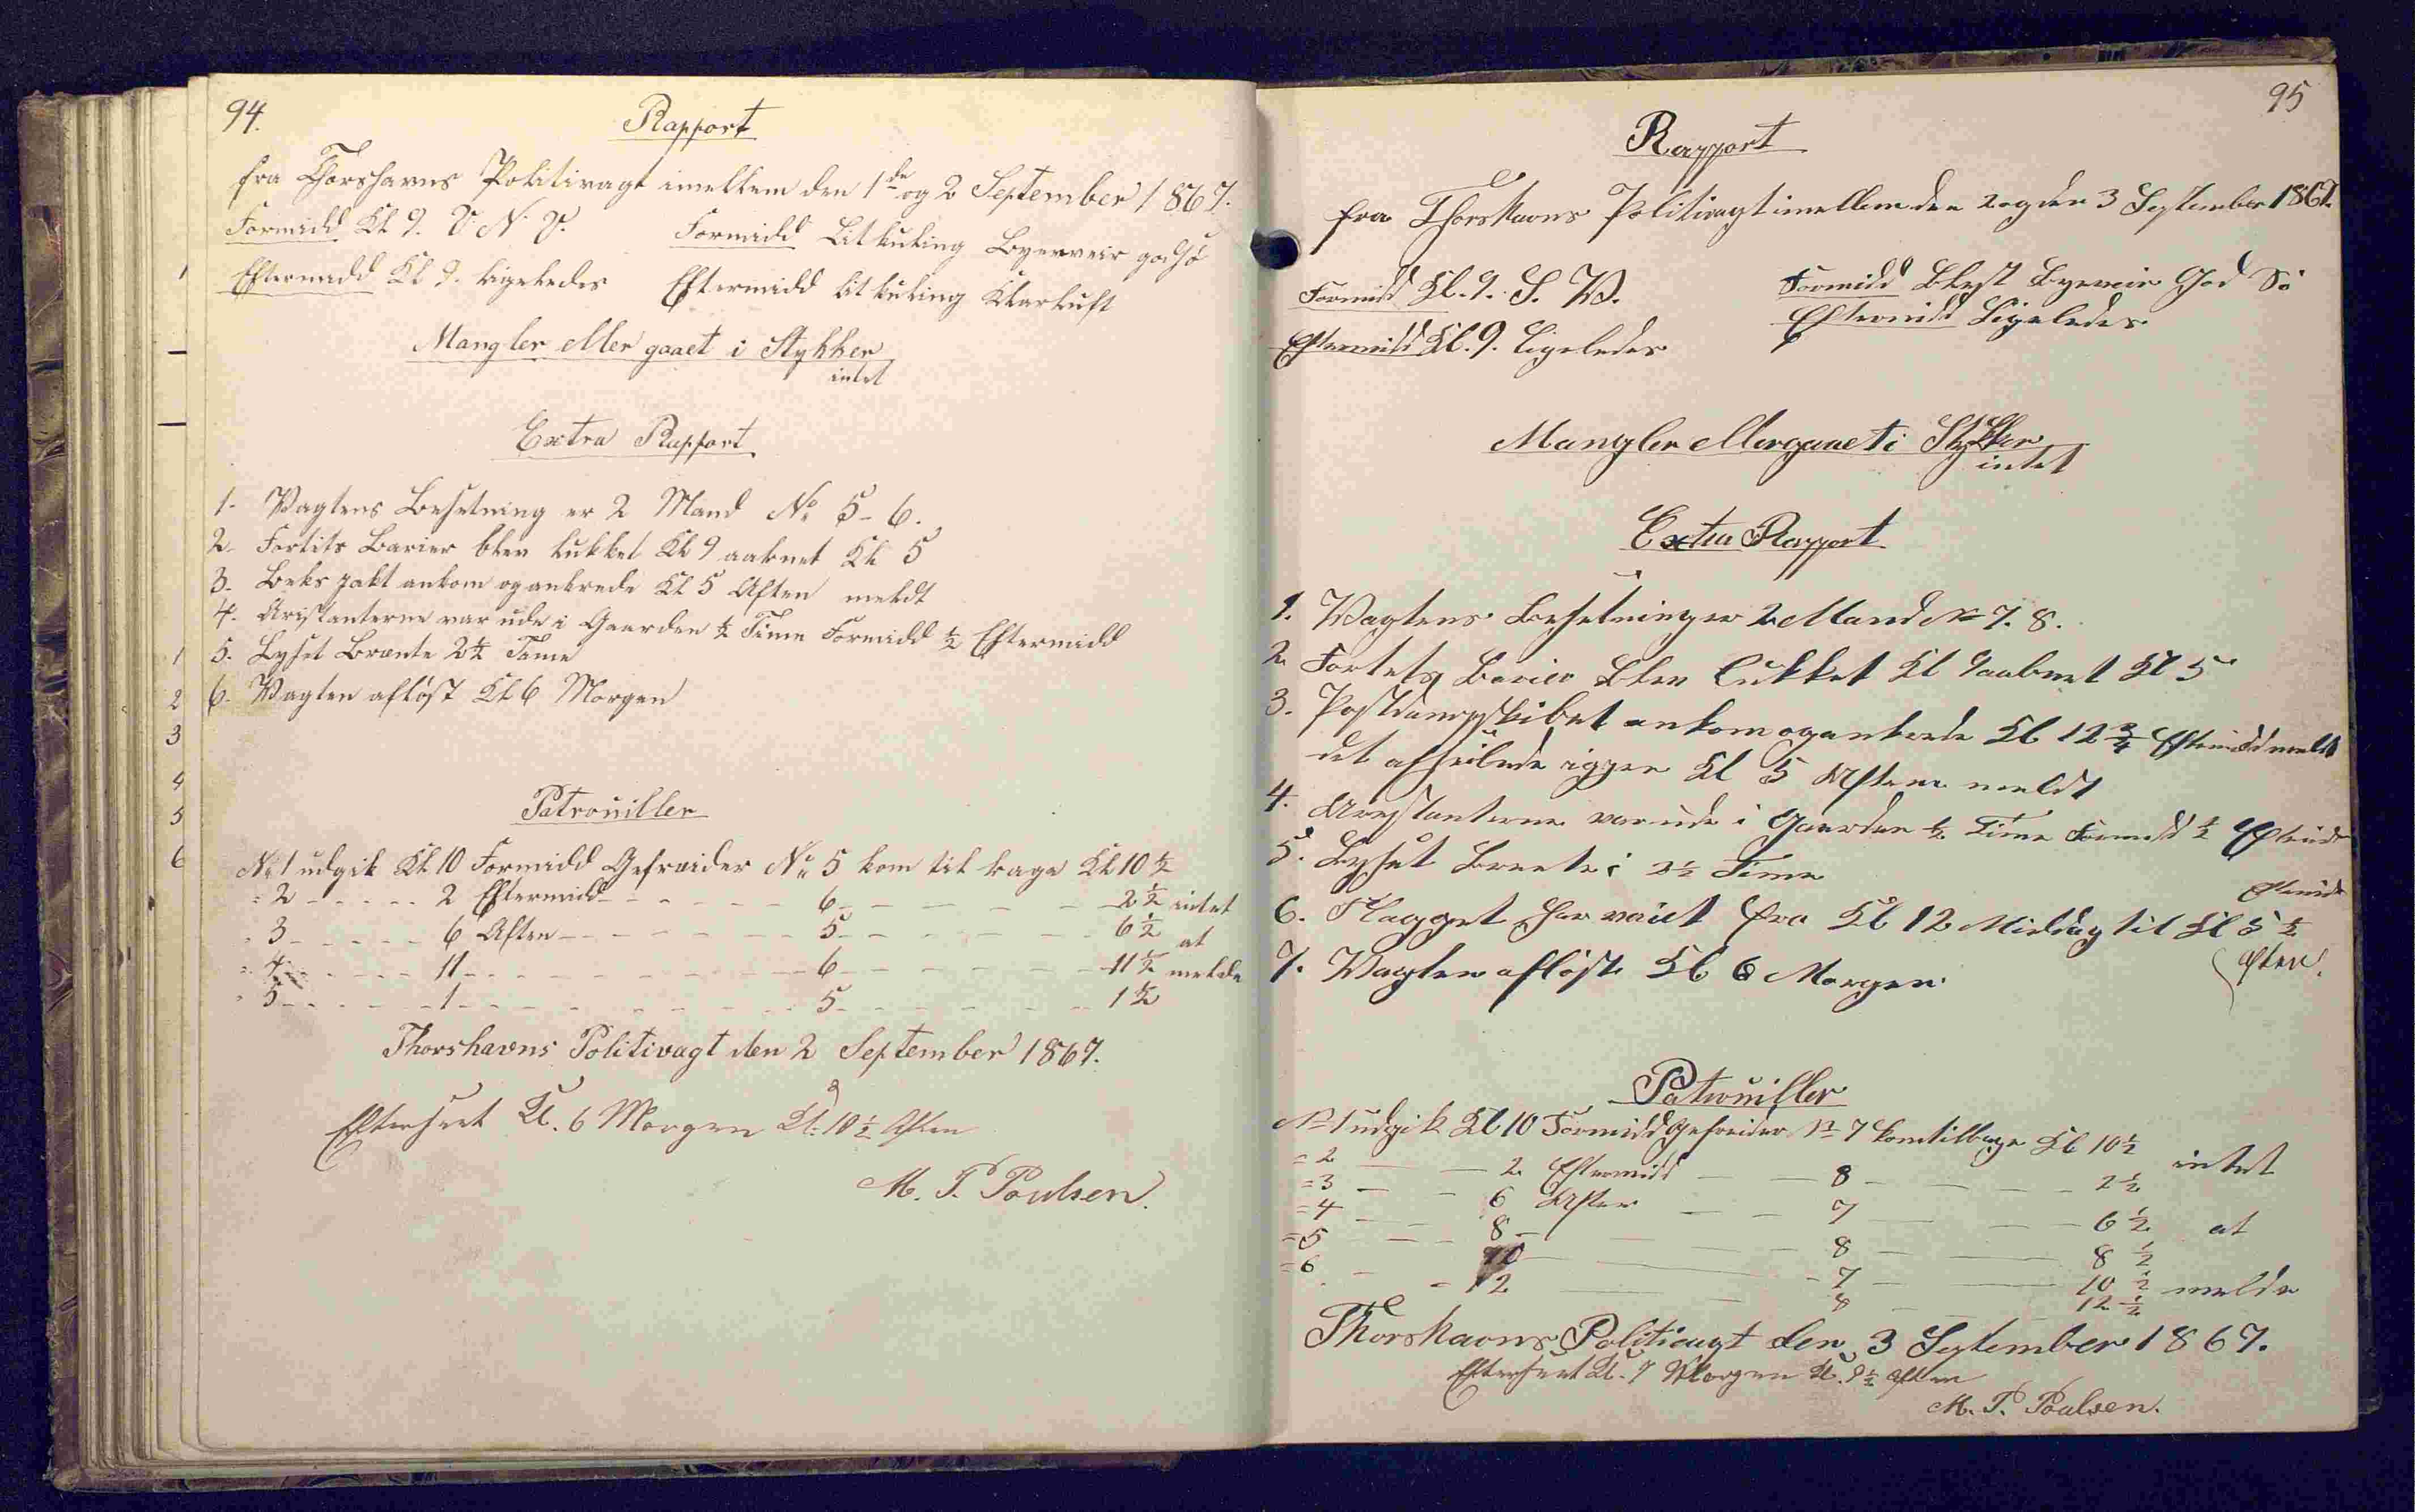 94.
Rapport
fra Thorshavns Politivagt imellem den 1de og 2 September 1867.
Formidd Kl 9. V. N. V. Formidd Litkuling Byerveir god Sö
Eftermidd Kl 9. ligeledes Eftermidd litkuling Klarluft
Mangler eller gaaet i Stykker
intet
Extra Rapport
1. Vagtens Besetning er 2 Mand No 5-6.
2. Fortits Barier blev lukket Kl 9 aabnet Kl 5
3. Beks jakt ankom og ankrede Kl 5 Aften meldt
4. Aristanterne var ude i Gaarden ½ Time Formidd ½ Eftermidd
5. Lyset Brænte 2½ Time
6. Vagten aflöst Kl 6 Morgen
Patrouiller
No 1 udgik Kl 10 Formidd Gefreider No 5 kom tilbage Kl 10 ½
= 2 - - - - - 2 Eftermidd - - - - - 6 - - - - - 2 ½ intet
= 3 - - - - - 6 Aften - - - - - 5 - - - - - 6 ½ at
= 4 - - - - - 11 - - - - - 6 - - - - - 11 ½ melde
= 5 - - - - - 1 - - - - - 5 - - - - - 1 ½
Thorshavns Politivagt den 2 September 1867.
Efterseet Kl. 6 Morgen Kl. 10 ½ Aften
M. P. Poulsen.
1
2
3
4
5
6
95
Rapport
fra Thorshavns Politivagt imellem den 2 og den 3 September 1867.
Formidd Kl. 9. S. V. Formidd Blest Byeveir God Sö
Eftermidd Kl. 9. Ligeledes Eftermidd Ligeledes
Mangler eller gaaet i Stykker
intet
Extra Rapport
1. Vagtens Besetning er 2 Mand No 7. 8.
2. Fortets Barier blev lukket Kl 9 aabnet Kl 5
3. Postdampskibet ankom og ankrede Kl 12 ¾ Eftermidd meldt
det afseilede iggen Kl 5 Aften meldt
4. Arestanterne var ude i Gaarden ½ Time Formidd ½ Eftermidd
5. Lyset Brente i 2½ Time
6. Flagget har vaiet fra Kl 12 Middag til Kl 5 ½
Aften.
7. Vagten aflöste Kl 6 Morgen
Patrouiller
No 1 udgik Kl 10 Formidd Gefreider No 7 kom tilbage Kl 10 ½
= 2 — — 2 Eftermidd — — 8 — — 2 ½ intet
= 3 — — 6 Aften — — 7 — — 6 ½ at
= 4 — — 8 — — 8 — — 8 ½
= 5 — — 10 — — 7 — — 10 ½ melde
= 6 — — 12 — — 8 — — 12 ½
Thorshavns Politivagt den 3 September 1867.
Efterseet Kl. 7 Morgen Kl. 9 ½ Aften
M. P. Poulsen.